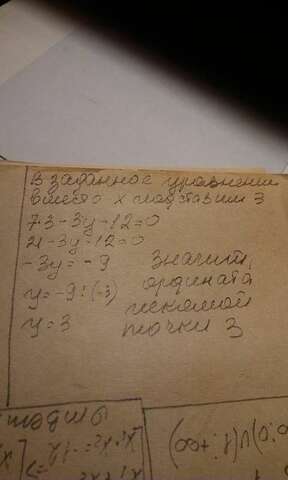 В заданное уравнение
вместо x подставим 3
7·3-3y-12=0
21-3y-12=0
-3y=-9
y=-9:(-3)
y=3
Значит,
ордината
искомой
точки 3
Ответ: